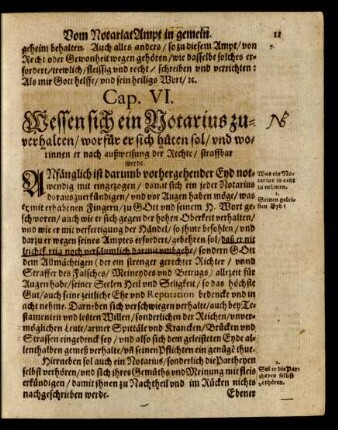 Vom Notariat Ampt in gemein. 11
geheim behalten. Auch alles anders / so zu diesem Ampt / von
Recht oder Gewonheit wegen gehören / wie dasselbe solches er-
fordert / trewlich / fleissig vnd recht / schreiben vnd verrichten:
Als mir Gott helffe / vnd sein heilig Wort / ꝛc.
Cap. VI.
Wessen sich ein Notarius zu-
verhalten / worfür er sich hüten sol / vnd wo-
rinnen er nach aufweisung der Rechte / straffbar
werde.
ANfänglich ist darumb vorhergehender Eyd not-
wendig mit eingezogen / damit sich ein jeder Notarius
daraus zuerkündigen / vnd vor Augen haben möge / was
er mit erhabenen Fingern / zu GOtt vnd seinem H. Wort ge-
schworen / auch wie er sich gegen der hohen Oberkeit verhalten /
vnd wie er mit verfertigung der Händel / so jhme befohlen / vnd
darzu er wegen seines Amptes erfordert / gebehren sol / daß er nit
leichtfertig noch versäumlich darmit vmbgehe / sondern GOtt
dem Allmächtigen / der ein strenger gerechter Richter / vnnd
Straffer des Falsches / Meineydes vnd Betrugs / allzeit für
Augen habe / seiner Seelen Heil vnd Seligkeit / so das höchste
Gut / auch seine zeitliche Ehr vnd Reputation bedencke vnd in
acht nehme. Darneben sich verschwiegen verhalte / auch bey Te-
stamenten vnd letzten Willen / sonderlichen der Reichen / vnver-
möglichen Leute / armer Spittäle vnd Krancken / Brücken vnd
Strassen eingedenck sey / vnd also sich dem geleisteten Eyde al-
lenthalben gemeß verhalte / vñ seinen Pflichten ein genüge thue.
Hierneben sol auch ein Notarius / sonderlich die Partheyen
selbst verhören / vnd sich jhres Gemüths vnd Meinung mit fleis
erkündigen / damit jhnen zu Nachtheil vnd im Rücken nichts
nachgeschrieben werde. Ebener
7.
NB
Was ein No-
tarius in acht
zu nehmen.
1.
Seinen geleiste-
ten Eyd.
2.
Sol er die Par-
theyen selbst
verhören.